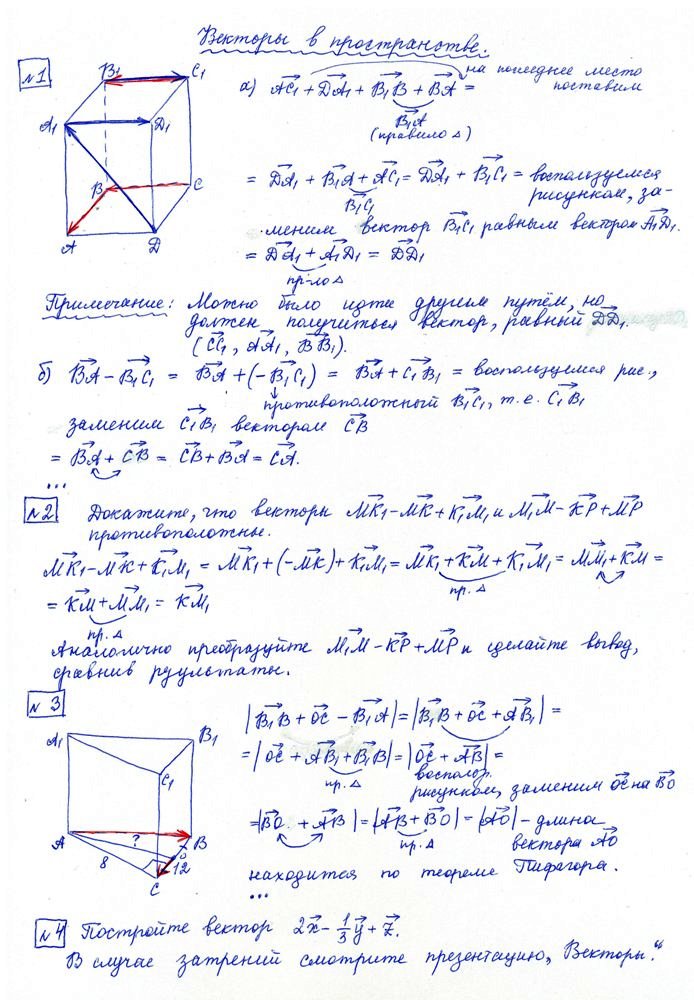 Векторы в пространстве.
№1
B₁ C₁ A₁ D₁ B C A D
а) AC₁ + DA₁ + B₁B + BA = на последнее место поставим
B₁A
(правило Δ)
= DA₁ + B₁A + AC₁ = DA₁ + B₁C₁ = воспользуемся
B₁C₁
рисунком, за-
меним вектор B₁C₁ равным вектором A₁D₁.
= DA₁ + A₁D₁ = DD₁
пр-ло Δ
Примечание: Можно было идти другим путём, но
должен получиться вектор, равный DD₁.
(CC₁, AA₁, BB₁).
б) BA - B₁C₁ = BA + (-B₁C₁) = BA + C₁B₁ = воспользуемся рис.,
противоположный B₁C₁, т.е. C₁B₁
заменим C₁B₁ вектором CB
= BA + CB = CB + BA = CA.
...
№2 Докажите, что векторы MK₁ - MK + K₁M₁ и M₁M - KP + MP
противоположны.
MK₁ - MK + K₁M₁ = MK₁ + (-MK) + K₁M₁ = MK₁ + KM + K₁M₁ = MM₁ + KM =
пр. Δ
= KM + MM₁ = KM₁
пр. Δ
Аналогично преобразуйте M₁M - KP + MP и сделайте вывод,
сравнив результаты.
№3
A₁ B₁ C₁ A B C O ? 8 12
|B₁B + OC - B₁A| = |B₁B + OC + AB₁| =
= |OC + AB₁ + B₁B| = |OC + AB| =
пр. Δ
воспольз.
рисунком, заменим OC на BO
= |BO + AB| = |AB + BO| = |AO| - длина
пр. Δ
вектора AO
находится по теореме Пифагора.
...
№4 Постройте вектор 2x - 1/3 y + z.
В случае затрений смотрите презентацию „Векторы."